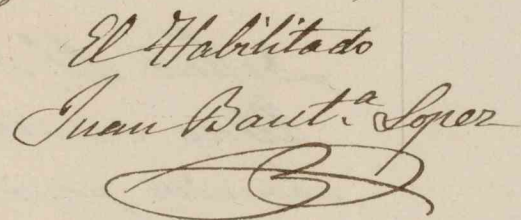 El Habilitado
Juan Baut.ª Lopez